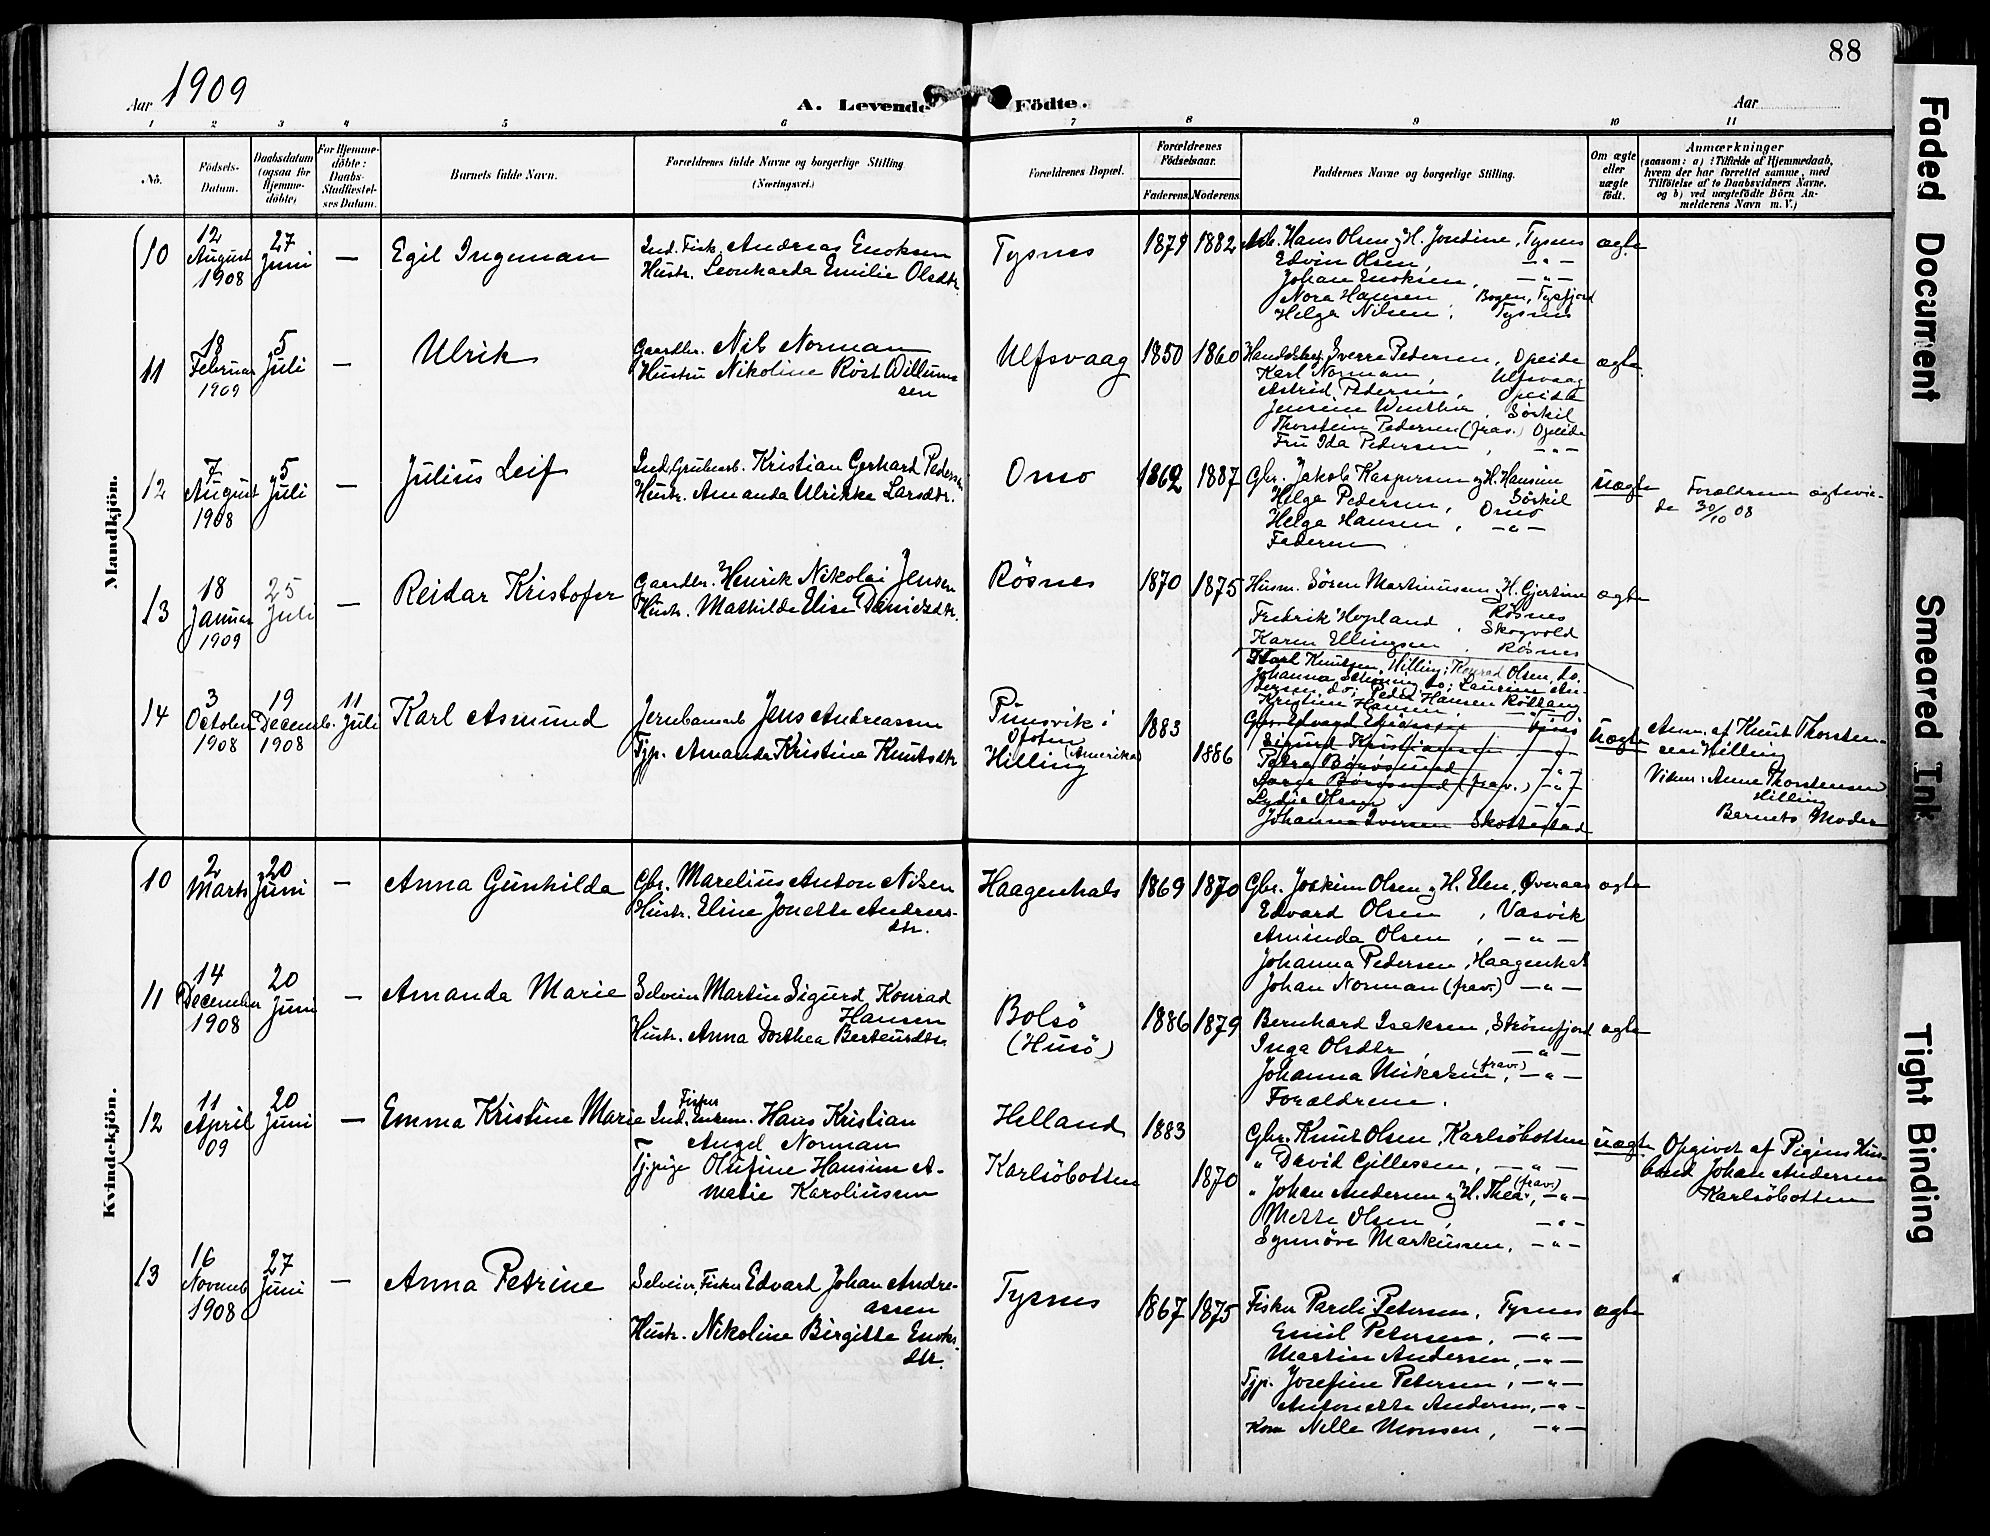 88
Aar 1909
A. Levende Fødte.
Aar
1 2 3 4 5 6 7 8 9 10 11
No.
Fødsels-Datum.
Daabsdatum (ogsaa for Hjemme-døbte)
For Hjemme-døbte: Daabs-Stadfæstel-ses Datum.
Barnets fulde Navn.
Forældrenes fulde Navne og borgerlige Stilling
(Næringsvei.)
Forældrenes Bopæl.
Forældrenes Fødselsaar.
Faderens. Moderens.
Faddernes Navne og borgerlige Stilling.
Om ægte eller uægte født.
Anmærkninger
(saasom: a) i Tilfælde af Hjemmedaab,
hvem der har forrettet samme, med
Tilføielse af to Daabsvidners Navne,
og b) ved uægtefødte Børn An-
melderens Navn m. V.)
Mandkjøn.
10
12 August 1908
27 Juni
—
Egil Ingeman
Ind. Fisk. Andreas Enoksen
Hustr. Leonharda Emilie Olsdtr.
Tysnes
1879 1882
Arb. Hans Olsen og H. Jondine, Tysnes
Edvin Olsen, —"—
Johan Enoksen, —"—
Nora Hansen, Bogen, Tysfjord
Helga Nilsen, Tysnes
ægte
11
18 Februar 1909
5 Juli
—
Ulrik
Gaardbr. Nils Norman
Hustru Nikoline Röst Willum-
sen
Ulfsvaag
1850 1860
Handelsbej. Sverre Pedersen, Opeide
Karl Norman, Ulfsvaag
Astrid Pedersen, Opeide
Jensine Winther, Sörkil
Thorstein Pedersen (frav.) Opeide
Fru Ida Pedersen, —"—
ægte
12
7 August 1908
5 Juli
—
Julius Leif
Ind. Grubearb. Kristian Gerhard Pedersen
Hustr. Amanda Ulrikke Larsdtr.
Omo
1862 1887
Gbr. Jakob Kaspersen og H. Hansine
Helga Pedersen, Sörkil
Helga Hansen, Omö —"—
Faderen
uægte
Forældrene ægtevie-
de 30/10 08
13
18 Januar 1909
25 Juli
—
Reidar Kristofer
Gaardbr. Henrik Nikolai Jensen
Hustr. Mathilde Elise Danielsdtr.
Røsnes
1870 1875
Husm. Søren Martinusen og H. Gjertine
Røsnes
Fredrik Hopland, Skogvold
Karen Ellingsen, Røsnes
ægte
14
3 October 1908
19 Decemb. 1908
11 Juli
Karl Asmund
Jernbanearb. Jens Andreassen
Tjp. Amanda Kristine Knutsdtr
Pünsvik i Ofoten (Amerika)
Hilling
1883
1886
Karl Knutsen, Hilling; Konrad Olsen, do.
Kristine Hansen
Gbr. Edvard
Sigurd Kristiansen —"—
Petra Börösund —"—
Börösund (frav.) —"—
Lydia Olsen —"—
Johanna Iversen Skottestad
uægte
Anm. af Knut Thorsten-
sen Hilling
Vidner: Anne Thorstensen
Hilling
Barnets Moder
Kvindekjøn.
10
2 Marts
20 Juni
—
Anna Gunhilda
Gbr. Marelius Anton Nilsen
Hustr. Eline Jonette Andreas-
dtr.
Haagenhals
1869 1870
Gbr. Joakim Olsen og H. Elen, Øveraas
Edvard Olsen, Vasvik
Aminda Olsen, —"—
Johanna Pedersen, Haagenhals
Johan Norman (frav.) —"—
ægte
11
14 December 1908
20 Juni
—
Amanda Marie
Selveier Martin Sigurd Konrad
Hansen
Hustr. Anna Dorthea Berteusdtr.
Bolsö
(Husö)
1886 1879
Bernhard Isaksen, Strömfjord
Inga Olsdtr, —"—
Johanna Mikalsen (frav.), —"—
Forældrene.
ægte
12
11 April 09
20 Juni
—
Emma Kristine Marie
Ind. Fisker Enkem. Hans Kristian
Angel Norman
Tj.pige Olufine Hansine A-
malie Karoliussen
Helland
Karlsöbotten
1883
1870
Gbr. Knut Olsen, Karlsöbotten
" David Gjillesen, —"—
" Johan Andersen og H. Thea (frav.), —"—
Mette Olsen, —"—
Synnöve Markussen, —"—
uægte
Opgivet af Pigens Hus-
bond Johan Andersen
Karlsöbotten
13
16 Novemb 1908
27 Juni
—
Anna Petrine
Selveier, Fisker Edvard Johan Andre-
assen
Hustr. Nikoline Birgitte Enoks-
dtr.
Tysnes
1867 1875
Fisker Pareli Petersen, Tysnes
Emil Petersen, —"—
Martin Andersen, —"—
Tjp. Josefine Petersen, —"—
Antonette Andersen, —"—
Kone Nelle Monsen, —"—
ægte
Faded Document
Smeared Ink
Tight Binding